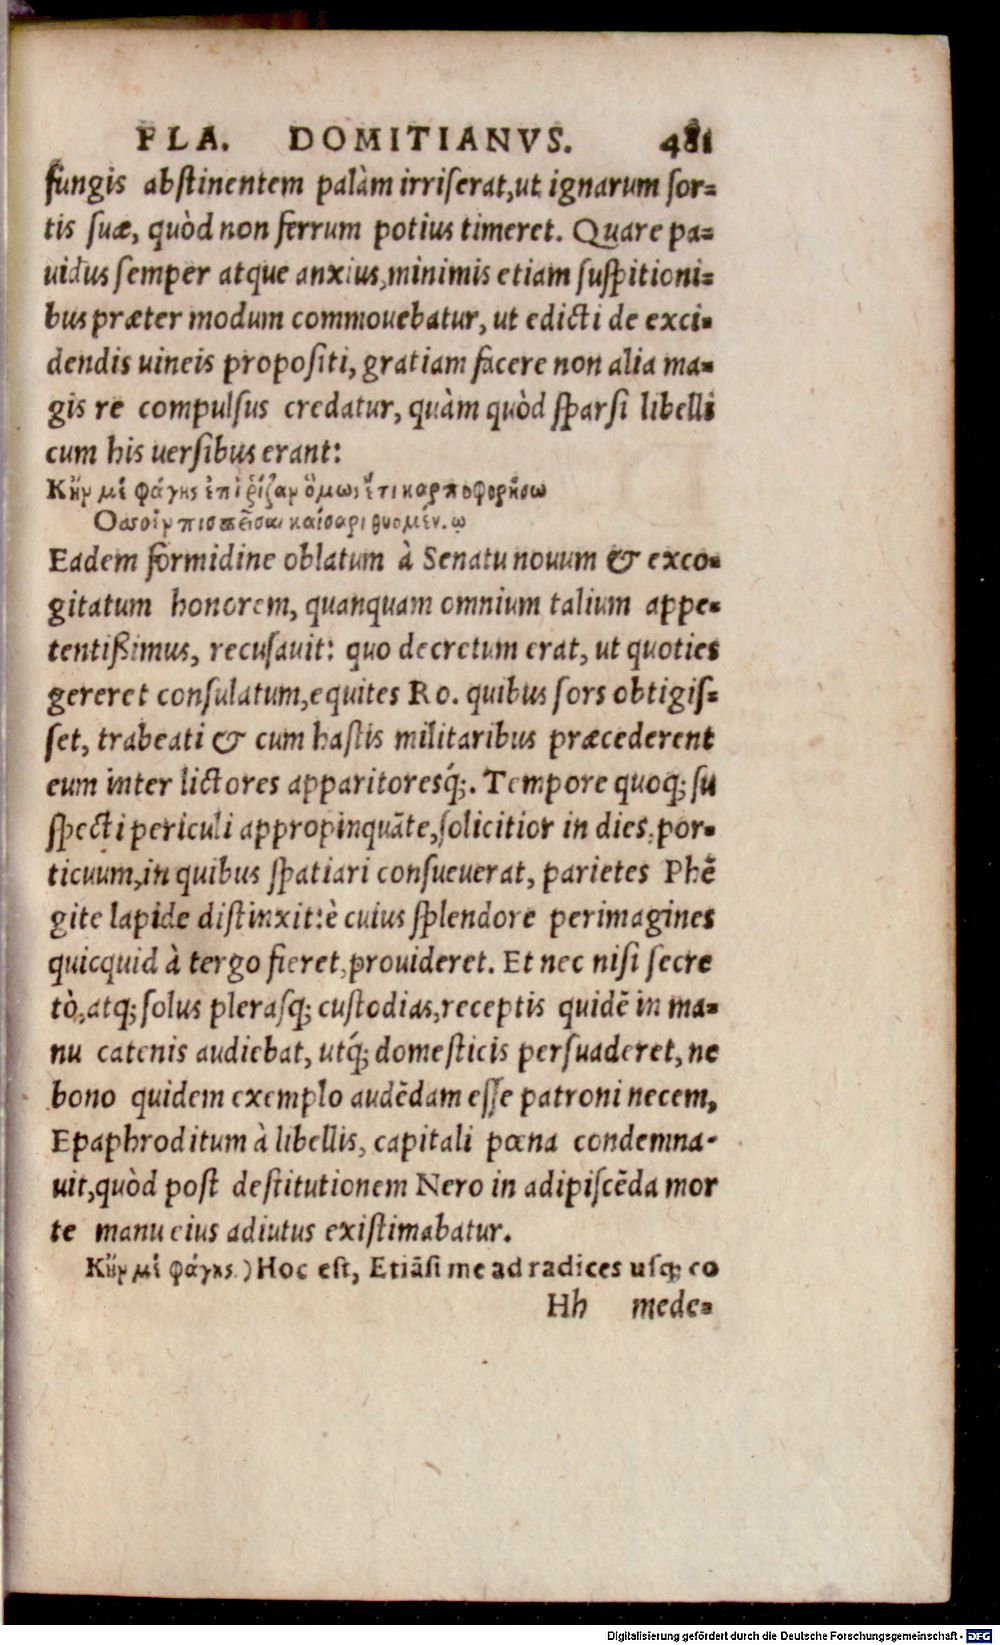 FLA. DOMITIANVS. 481
fungis abstinentem palàm irriserat,ut ignarum sor=
tis suæ, quòd non ferrum potius timeret. Quare pa=
uidus semper atque anxius,minimis etiam suspitioni=
bus præter modum commouebatur, ut edicti de exci=
dendis uineis propositi, gratiam facere non alia ma=
gis re compulsus credatur, quàm quòd sparsi libelli
cum his uersibus erant:
Κἤν με φάγῃς ἐπὶ ῥίζαν ὅμως ἔτι καρποφορήσω
Ὅσσον καίσαρι θυομένῳ
Eadem formidine oblatum à Senatu nouum & exco=
gitatum honorem, quanquam omnium talium appe=
tentißimus, recusauit: quo decretum erat, ut quoties
gereret consulatum,equites Ro. quibus sors obtigis=
set, trabeati & cum hastis militaribus præcederent
eum inter lictores apparitoresq́;. Tempore quoq; su
specti periculi appropinquāte,solicitior in dies,por=
ticuum,in quibus spatiari consueuerat, parietes Phē
gite lapide distinxit:è cuius splendore perimagines
quicquid à tergo fieret,prouideret. Et nec nisi secre
tò,atq; solus plerasq; custodias,receptis quidē in ma=
nu catenis audiebat, utq́; domesticis persuaderet, ne
bono quidem exemplo audēdam esse patroni necem,
Epaphroditum à libellis, capitali pœna condemna=
uit,quòd post destitutionem Nero in adipiscēda mor
te manu eius adiutus existimabatur.
Κἤν με φάγῃς.) Hoc est, Etiāsi me ad radices usq; co
Hh mede=
Digitalisierung gefördert durch die Deutsche Forschungsgemeinschaft - DFG